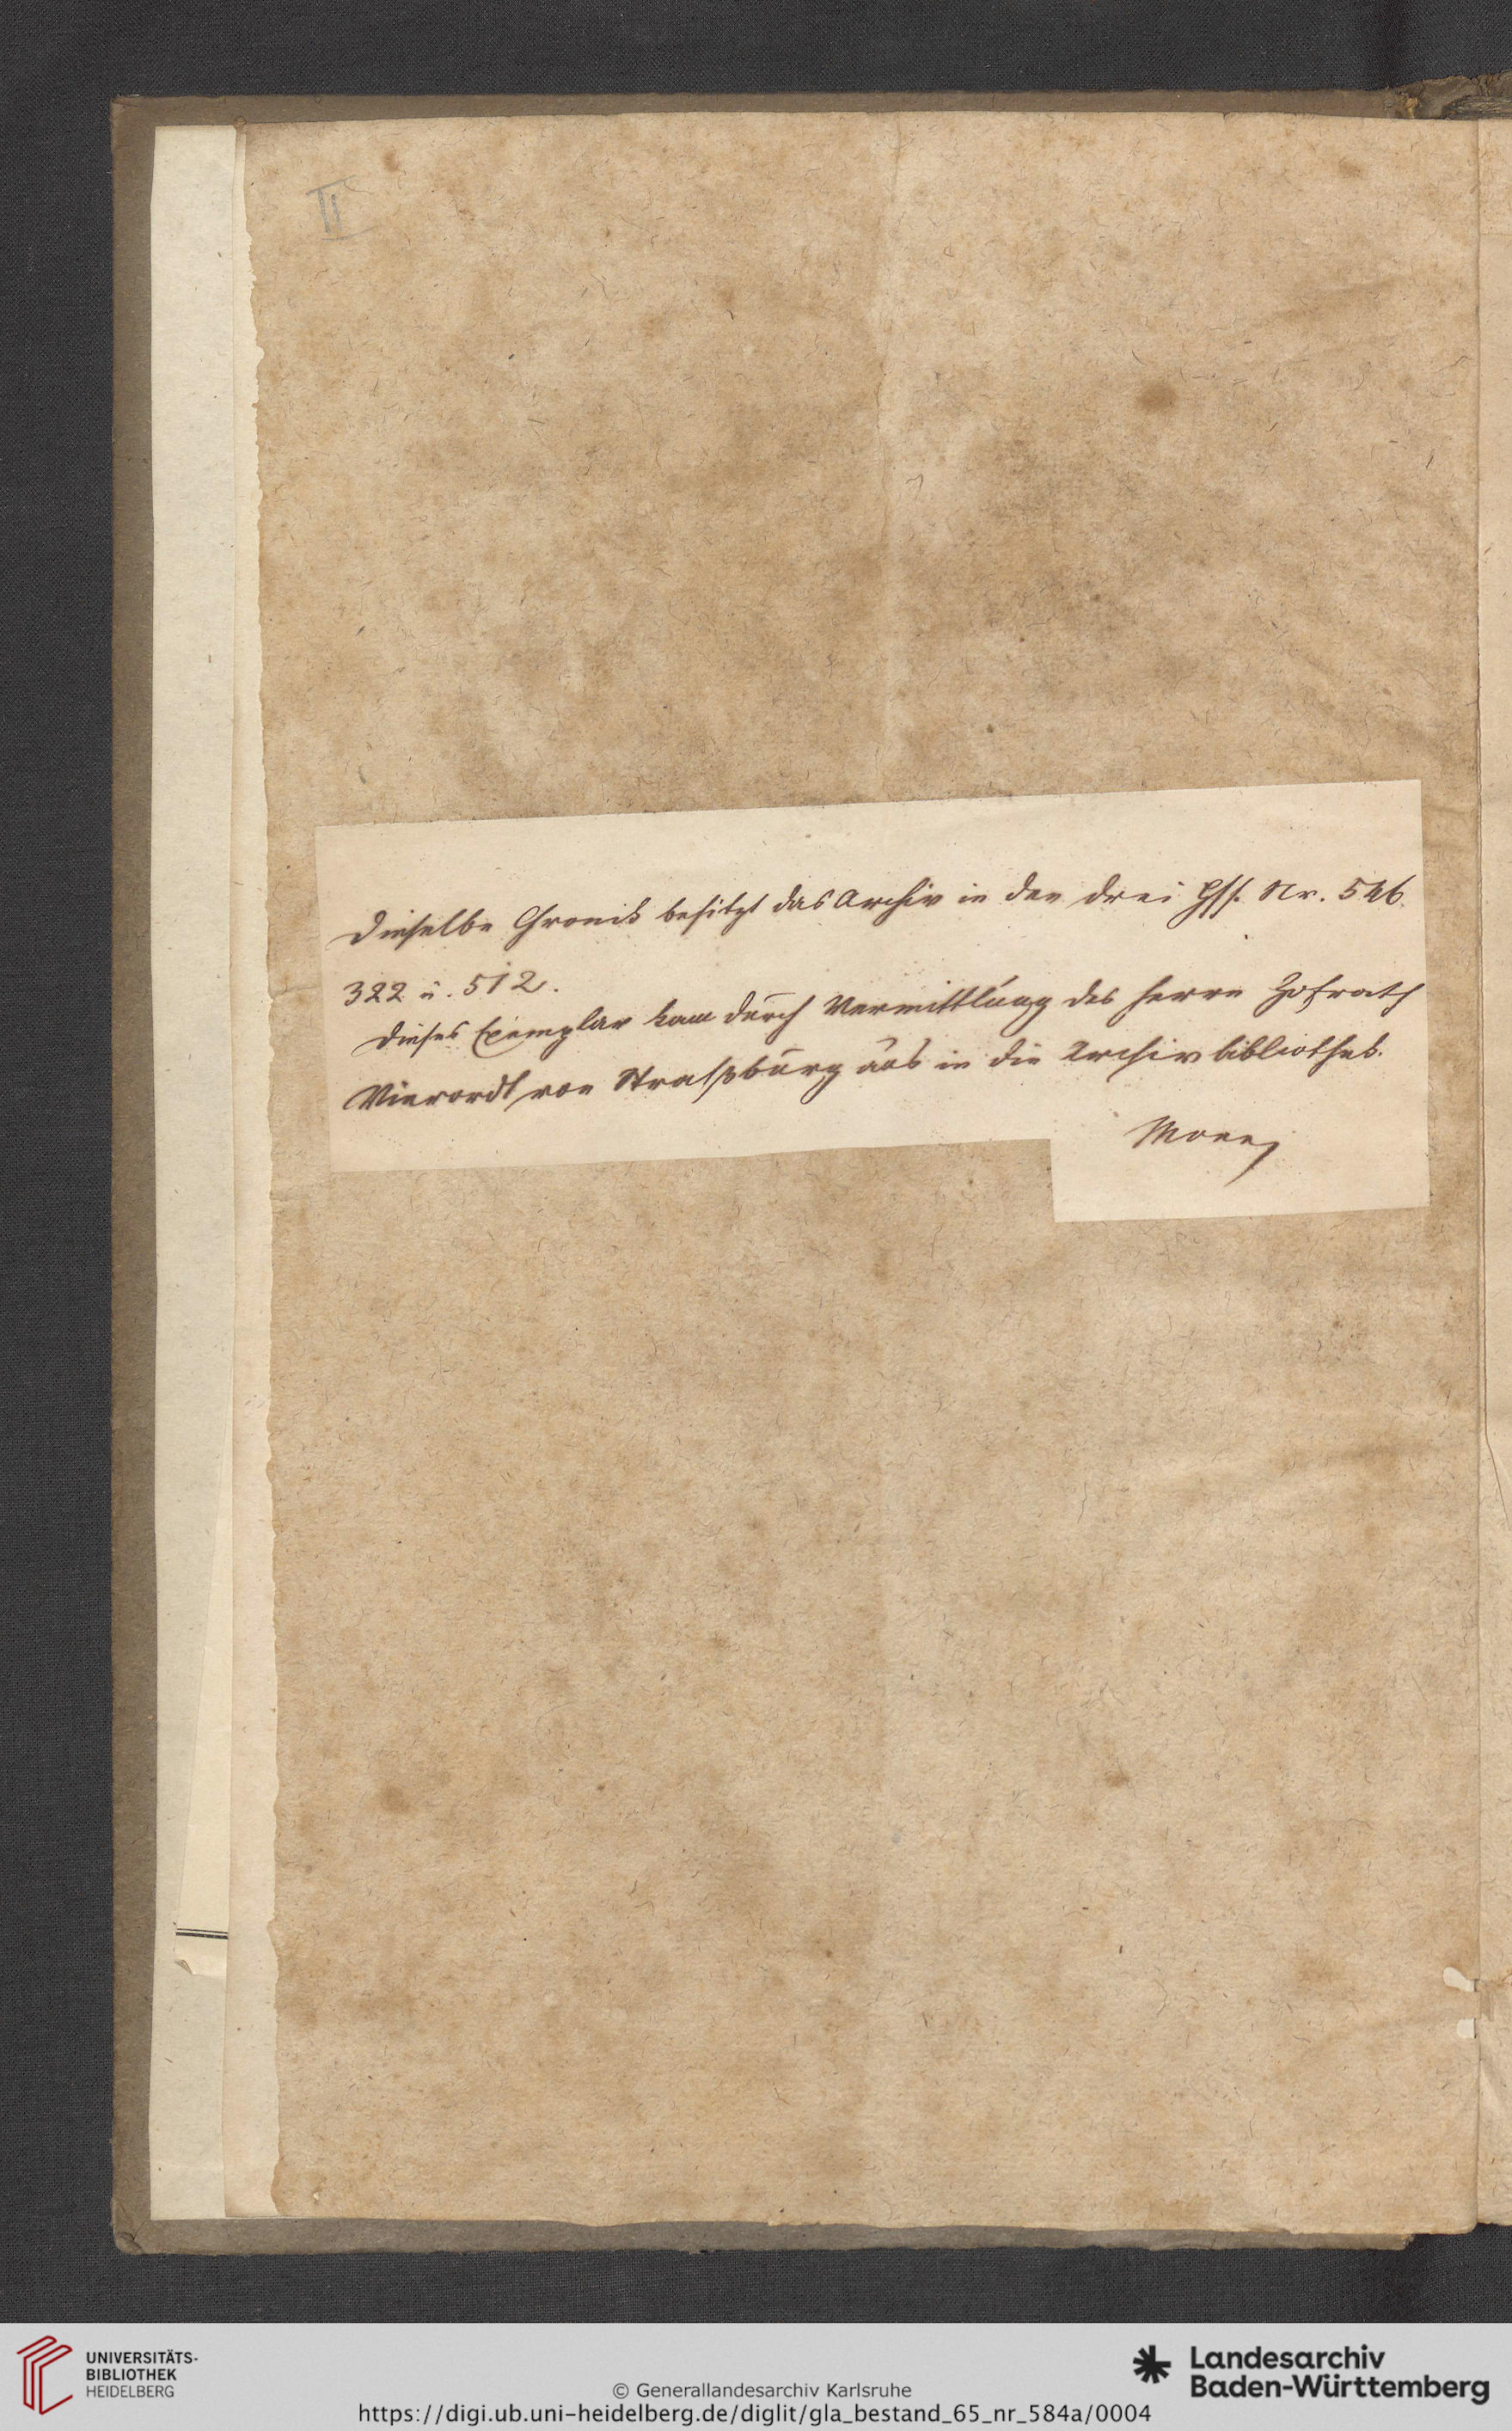 II
Dieselbe Chronik besitzt das Archiv in den drei Hss. Nr. 546.
322 u. 512.
Dieses Exemplar kam durch Vermittlung des Herrn Hofrath
Vierordt von Straßburg aus in die Archivbibliothek.
Mone
UNIVERSITÄTS-
BIBLIOTHEK
HEIDELBERG
© Generallandesarchiv Karlsruhe
https://digi.ub.uni-heidelberg.de/diglit/gla_bestand_65_nr_584a/0004
Landesarchiv
Baden-Württemberg